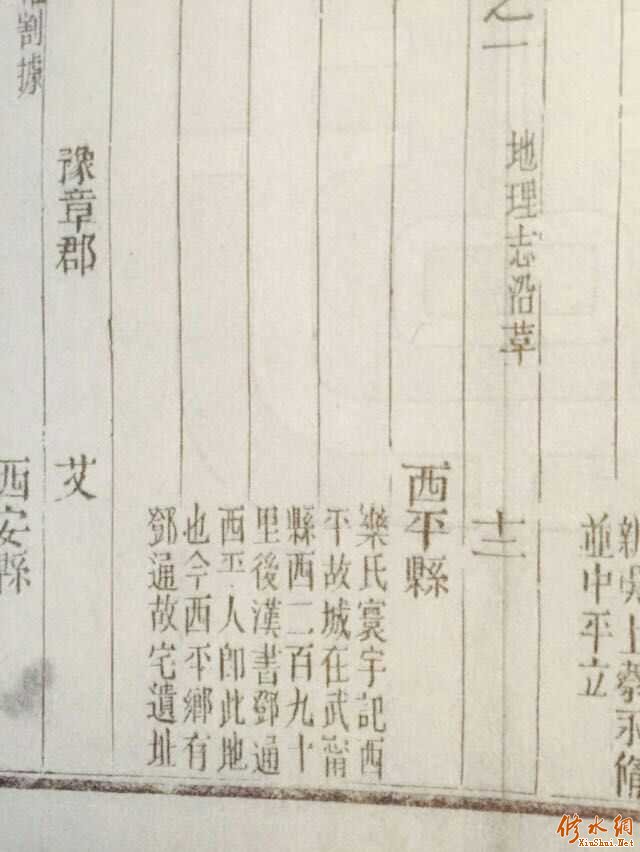 新吳上蔡永修
並中平立
之一　地理志沿革　十二
西平縣
樂氏寰宇記西
平故城在武甯
縣西二百九十
里後漢書鄧通
西平人即此地
也今西平鄉有
鄧通故宅遺址
豫章郡　艾
割據　西安縣
修水網
XiuShui.Net